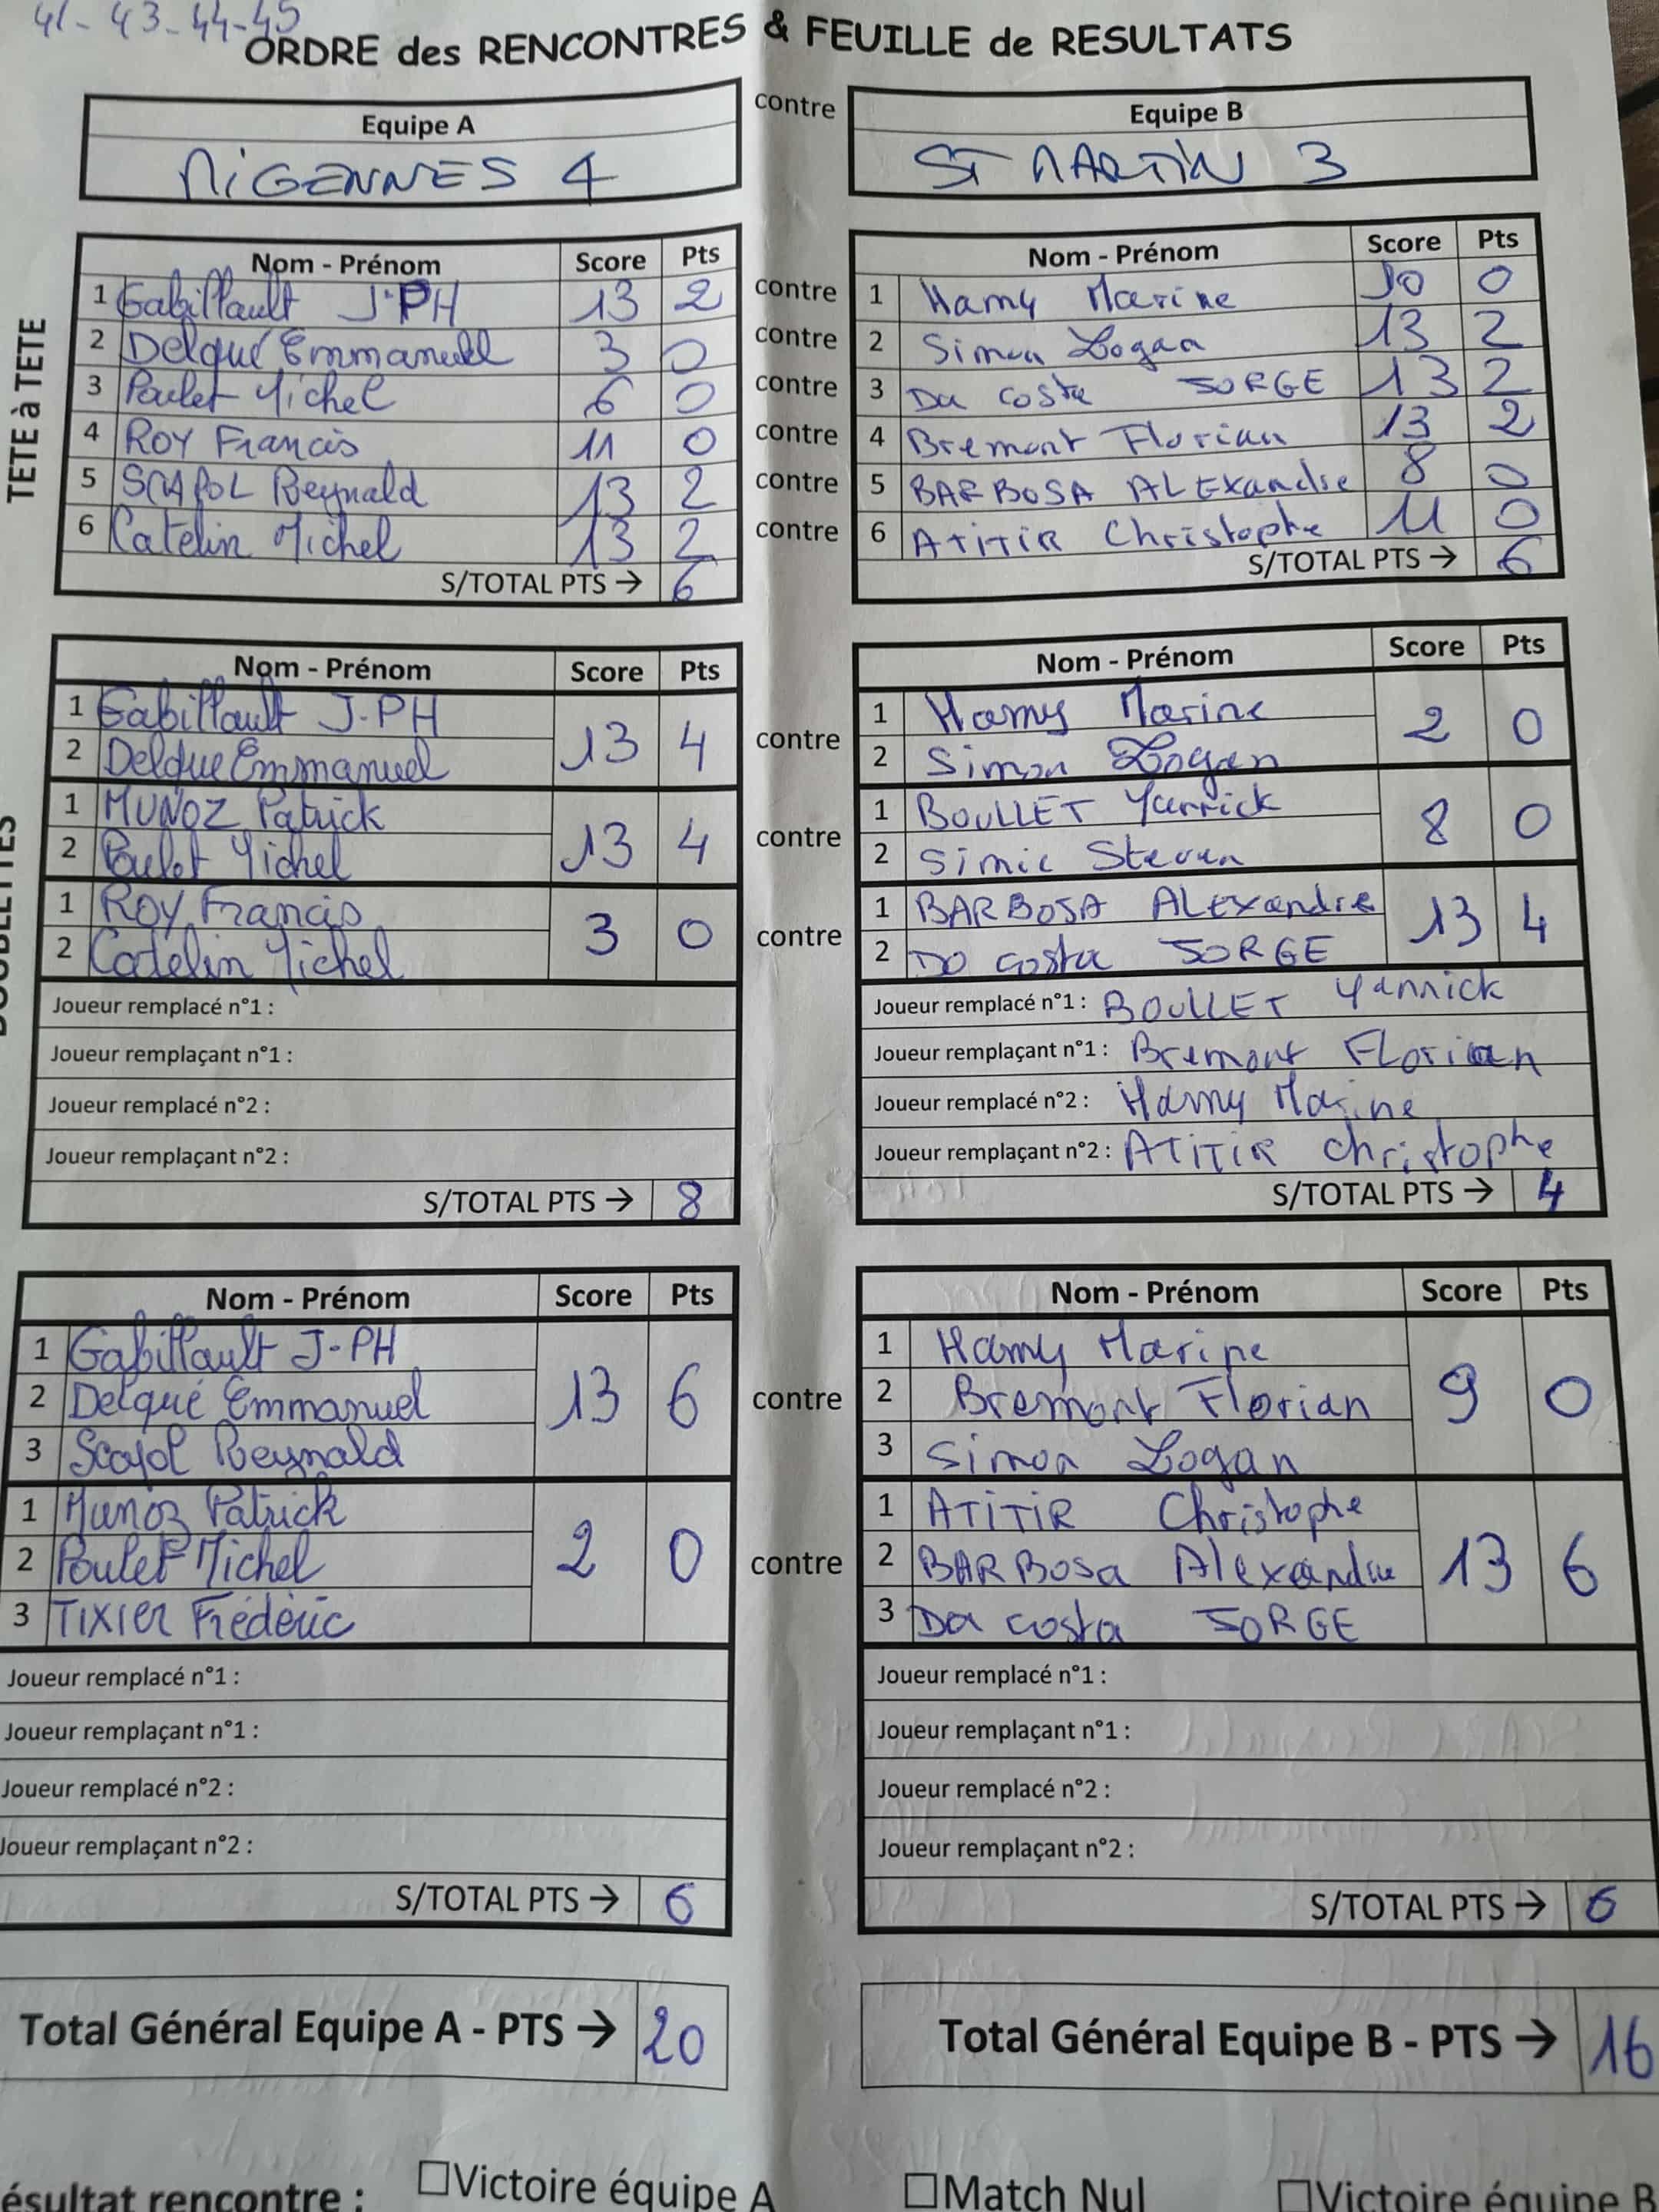 41-43-44-45
ORDRE des RENCONTRES & FEUILLE de RESULTATS
Equipe A contre Equipe B
MIGENNES 4 ST MARTIN 3
TETE à TETE
Nom - Prénom Score Pts Nom - Prénom Score Pts
1 Gabillault J-PH 13 2 contre 1 Hamy Marine 10 0
2 Delqué Emmanuel 3 0 contre 2 Simon Logan 13 2
3 Poulet Michel 6 0 contre 3 Da costa JORGE 13 2
4 ROY Francis 11 0 contre 4 Bremont Florian 13 2
5 SCAPOL Reynald 13 2 contre 5 BARBOSA ALEXandre 8 0
6 Catelin Michel 13 2 contre 6 ATITIR Christophe 11 0
S/TOTAL PTS → 6 S/TOTAL PTS → 6
DOUBLETTES
Nom - Prénom Score Pts Nom - Prénom Score Pts
1 Gabillault J-PH 13 4 contre 1 Hamy Marine 2 0
2 Delque Emmanuel 2 Simon Logan
1 MUNOZ Patrick 13 4 contre 1 BOULLET Yannick 8 0
2 Poulet Michel 2 Simic Steven
1 ROY Francis 3 0 contre 1 BARBOSA ALExandre 13 4
2 Catelin Michel 2 DO costa JORGE
Joueur remplacé n°1 : Joueur remplacé n°1 : BOULLET Yannick
Joueur remplaçant n°1 : Joueur remplaçant n°1 : Bremont FLorian
Joueur remplacé n°2 : Joueur remplacé n°2 : Hamy Marine
Joueur remplaçant n°2 : Joueur remplaçant n°2 : ATITIR christophe
S/TOTAL PTS → 8 S/TOTAL PTS → 4
Nom - Prénom Score Pts Nom - Prénom Score Pts
1 Gabillault J-PH 13 6 contre 1 Hamy Marine 9 0
2 Delqué Emmanuel 2 Bremont Florian
3 Reynald 3 Simon Logan
1 Munoz Patrick 2 0 contre 1 ATITIR Christophe 13 6
2 Poulet Michel 2 BARBosa Alexandre
3 TIXIER Frédéric 3 Da costa JORGE
Joueur remplacé n°1 : Joueur remplacé n°1 :
Joueur remplaçant n°1 : Joueur remplaçant n°1 :
Joueur remplacé n°2 : Joueur remplacé n°2 :
Joueur remplaçant n°2 : Joueur remplaçant n°2 :
S/TOTAL PTS → 6 S/TOTAL PTS → 6
Total Général Equipe A - PTS → 20 Total Général Equipe B - PTS → 16
ésultat rencontre : ☐Victoire équipe A ☐Match Nul ☐Victoire équipe B